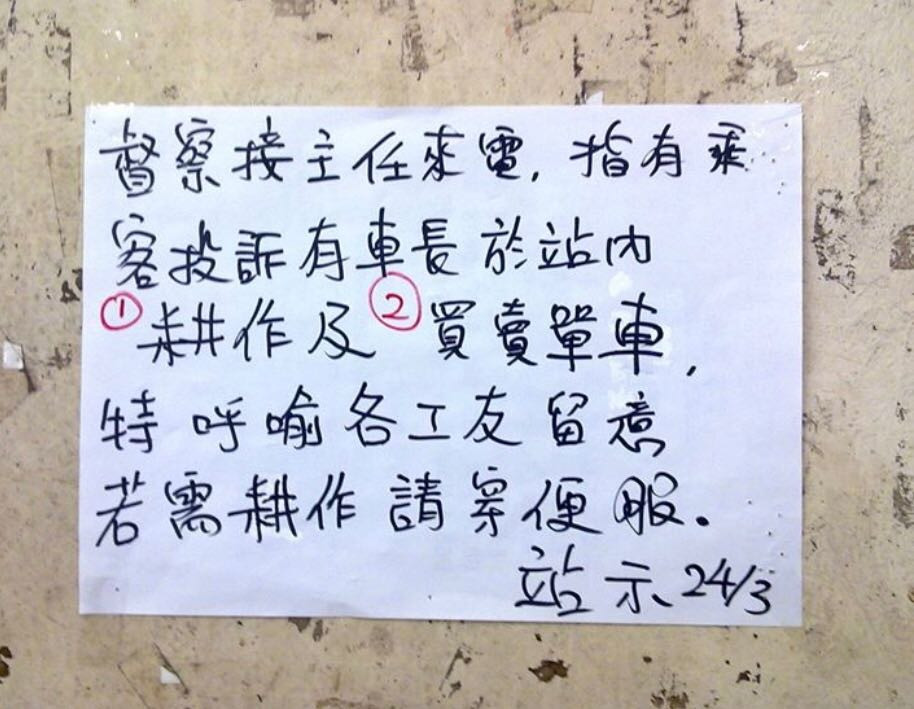 督察接主任來電，指有乘
客投訴有車長於站內
①耕作及②買賣單車，
特呼喻各工友留意
若需耕作請穿便服。
站示 24/3